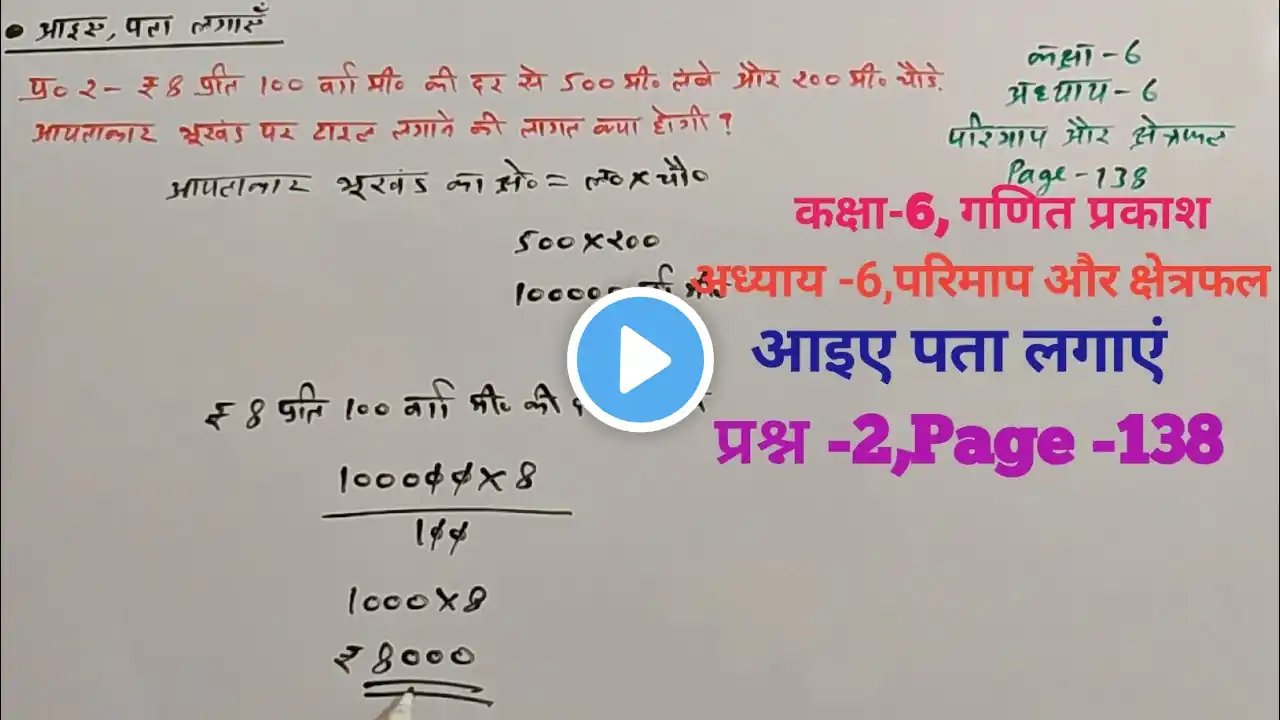 • आइए, पता लगाएँ
प्र० २- ₹ 8 प्रति 100 वर्ग मी० की दर से 500 मी० लंबे और २०० मी० चौड़े
आयताकार भूखंड पर टाइल लगाने की लागत क्या होगी ?
कक्षा - 6
अध्याय - 6
परिमाप और क्षेत्रफल
Page - 138
आयताकार भूखंड का क्षे० = ल० × चौ०
500 × २00
100000 वर्ग मी०
₹ 8 प्रति 100 वर्ग मी० की
100000 × 8
100
1000 × 8
₹ 8000
कक्षा-6, गणित प्रकाश
अध्याय -6,परिमाप और क्षेत्रफल
आइए पता लगाएं
प्रश्न -2,Page -138